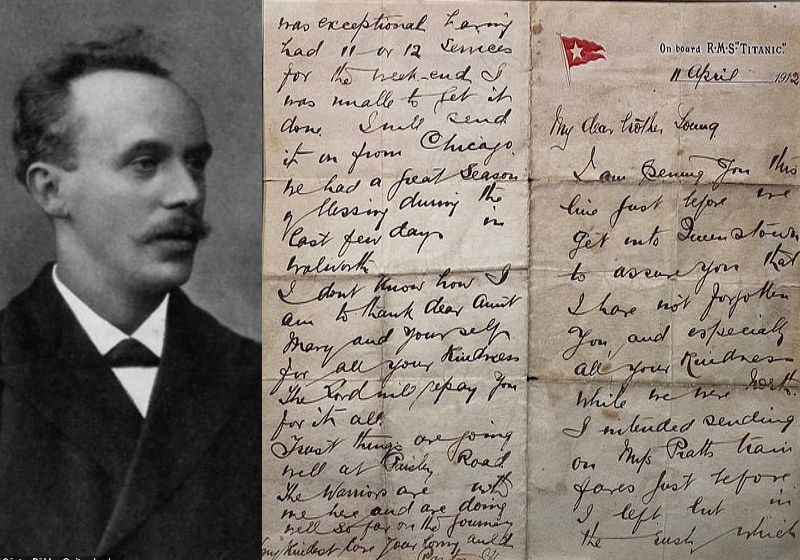 On board R.M.S "TITANIC."
11 April 1912
My dear brother Young
I am penning you this
line just before we
get into Queenstown
to assure you that
I have not forgotten
you and especially
all your kindness
while we were North.
I intended sending
on Mrs Pratts train
fares just before
I left but in
the rush which
was exceptional having
had 11 or 12 Services
for the week-end I
was unable to get it
done. I will send
it on from Chicago.
We had a great Season
of blessing during the
last few days in
Walworth.
I dont know how I
am to thank dear Aunt
Mary and yourself
for all your kindness
The Lord will repay you
for it all.
Trust things are going
well at Paisley Road.
The Warriors are with
me here and are doing
well so far on the journey
my kindest love your loving auld